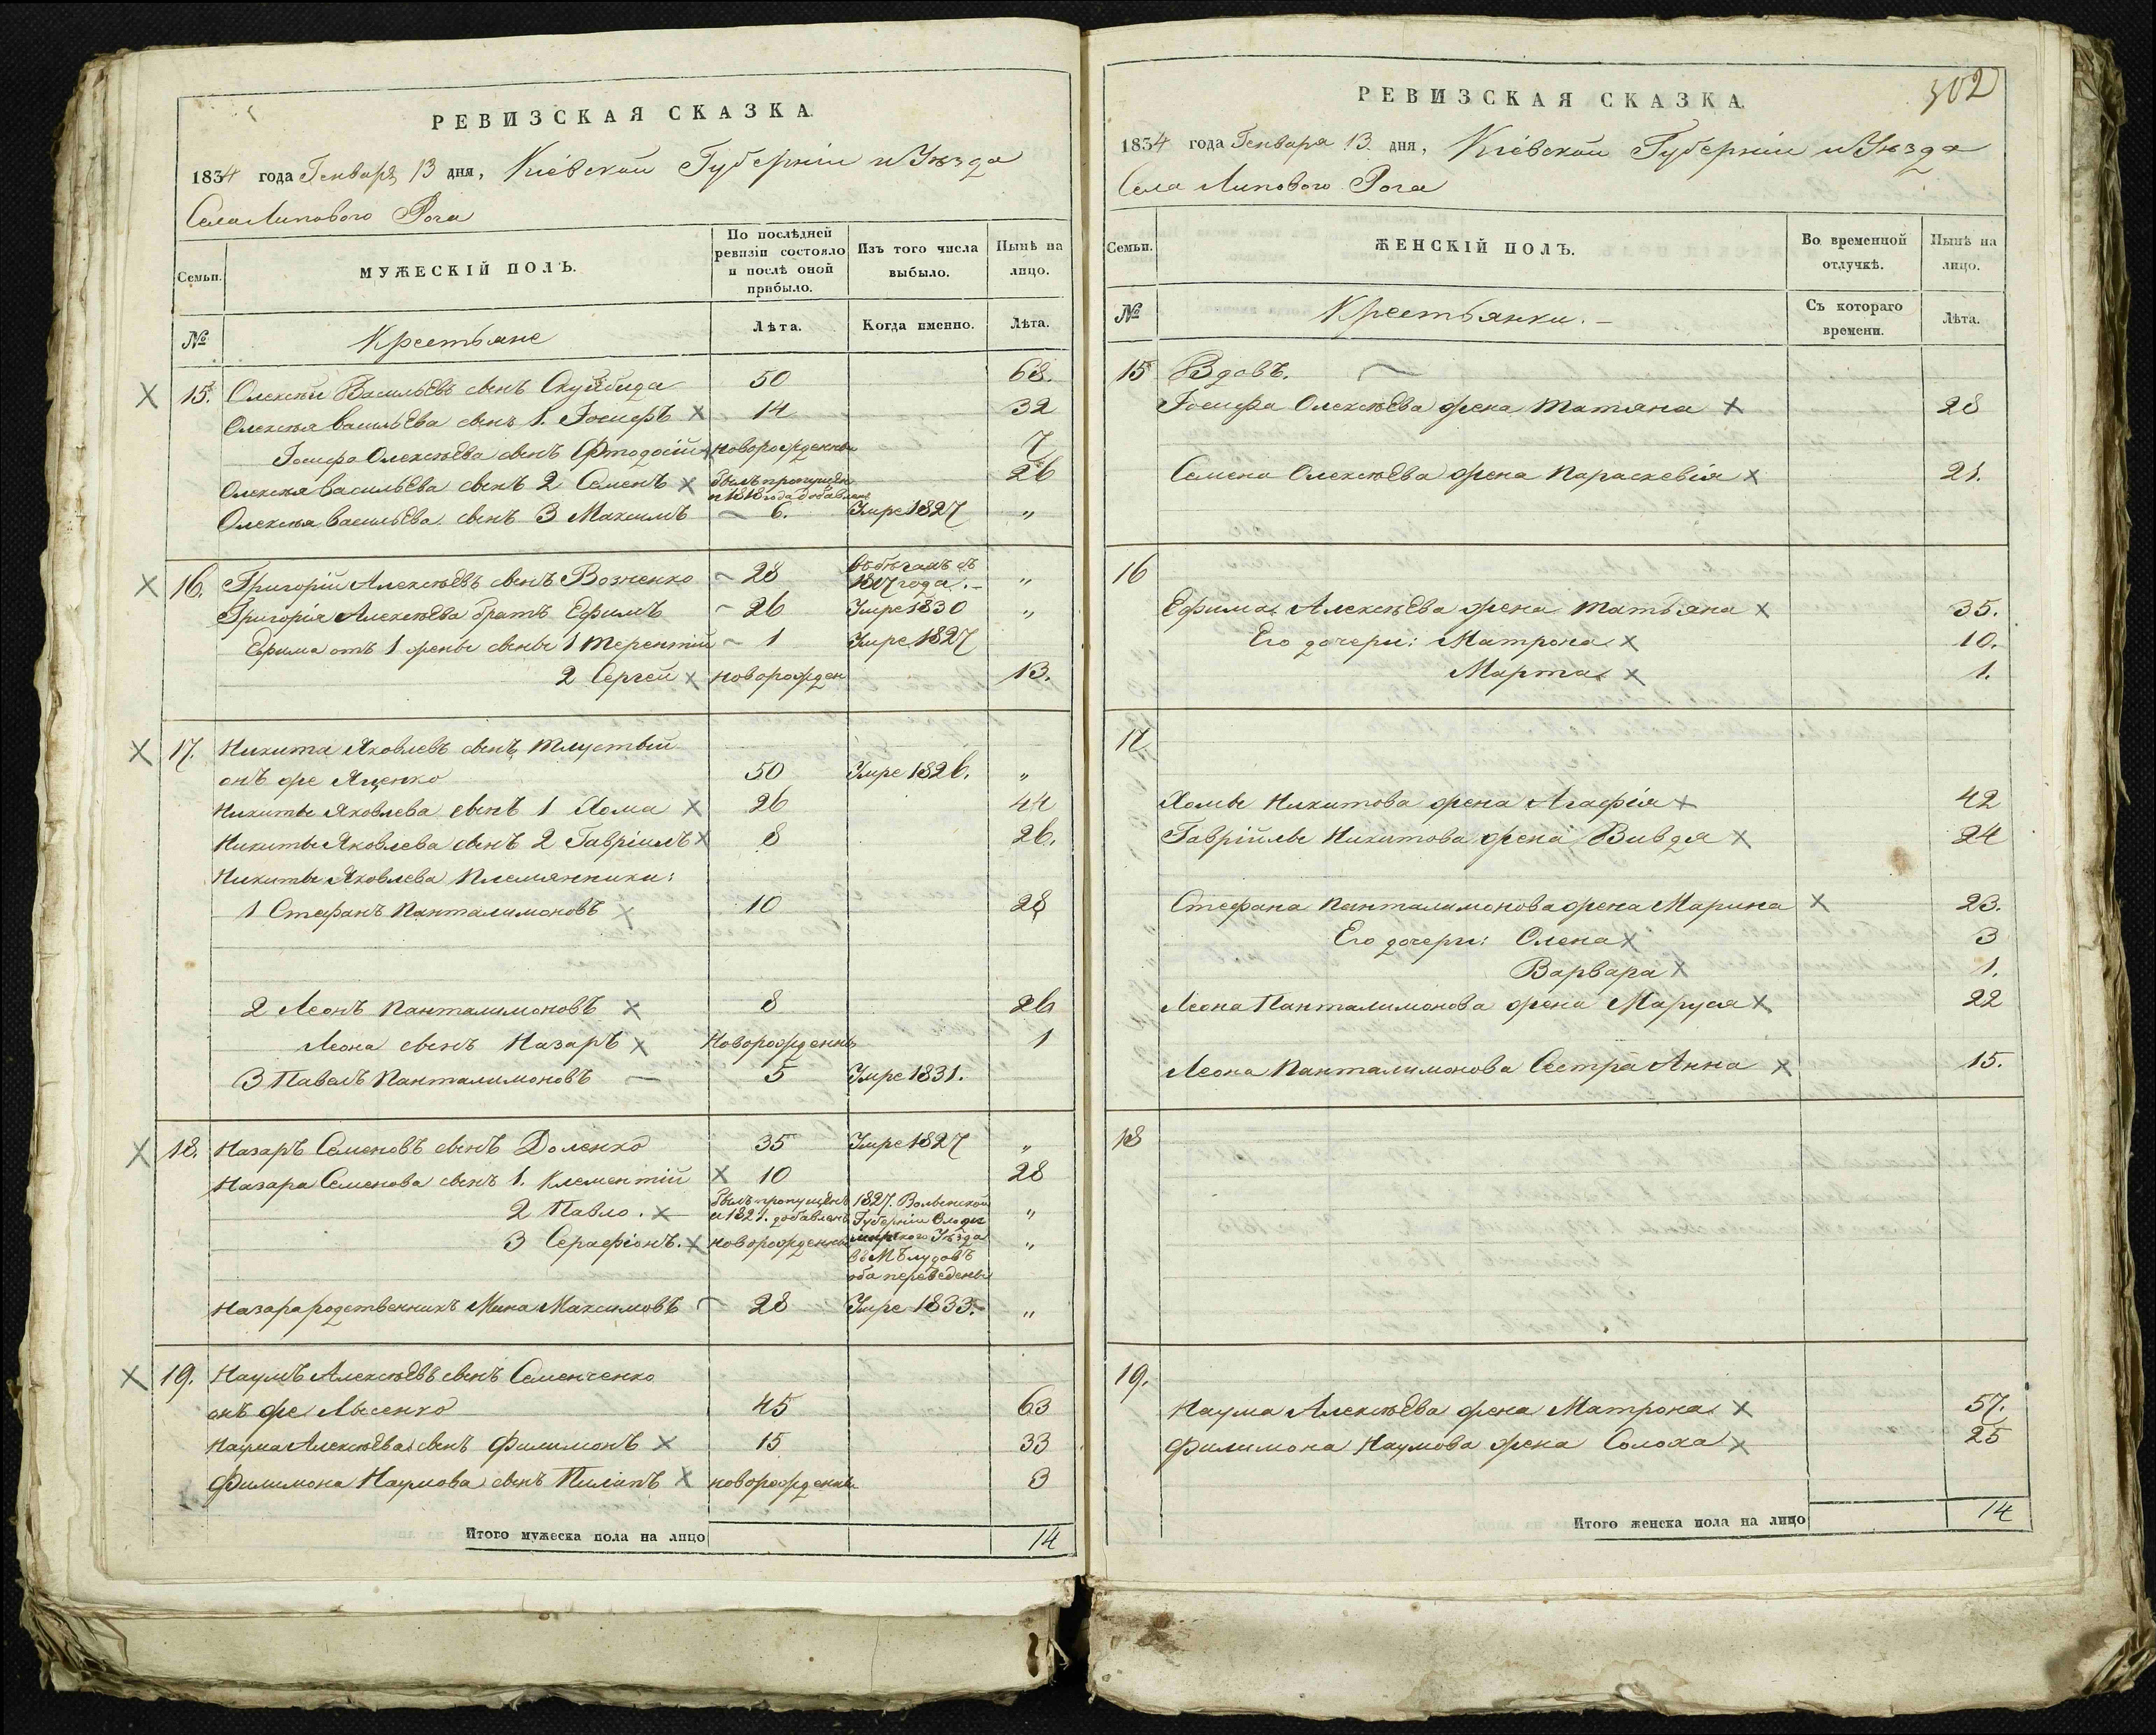 РЕВИЗСКАЯ СКАЗКА.
1834 года Генваря 13 дня, Кіевской Губерніи и Уѣзда
Села Липового Рога
Семьи.
МУЖЕСКІЙ ПОЛЪ.
По послѣдней ревизіи состояло и послѣ оной прибыло.
Изъ того числа выбыло.
Нынѣ на лицо.
№
Крестьяне
Лѣта.
Когда именно.
Лѣта.
15. Олексѣй Васильевъ сынъ Скуйбида 50 68.
Олексѣя Васильева сынъ 1. Іосифъ 14 32
Іосифа Олексѣева сынъ Фтодосій новорожденны 7
Олексѣя Васильева сынъ 2 Семенъ былъ пропущен и 1818 года добавленъ 26
Олексѣя Васильева сынъ 3 Максимъ 6. Умре 1827 „
16. Григорій Алексѣевъ сынъ Возченко 28 въ бѣгахъ съ 1817 года. „
Григорія Алексѣева братъ Ефимъ 26 Умре 1830 „
Ефима отъ 1 жены сыны 1 Терентій 1 Умре 1827
2 Сергей новорожден 13.
17. Никита Яковлевъ сынъ Тлустый
онъ же Яценко 50 Умре 1826. „
Никиты Яковлева сынъ 1 Хома 26 44
Никиты Яковлева сынъ 2 Гавріилъ 8 26.
Никиты Яковлева Племянники:
1 Стефанъ Панталимоновъ 10 28
2 Леонъ Панталимоновъ 8 26
Леона сынъ Назаръ Новорожденны 1
3 Павелъ Панталимоновъ 5 Умре 1831.
18. Назаръ Семеновъ сынъ Доленко 35 Умре 1827 „
Назара Семенова сынъ 1. Клементій 10 28
2 Павло. былъ пропущенъ и 1821. добавленъ „
3 Серафіонъ. новорожденны „
1827. Волынской
Губерніи Влади
мирского Уѣзда
оба переведены
Назара родственникъ Мина Максимовъ 28 Умре 1833. „
19. Наумъ Алексѣевъ сынъ Семенченко
онъ же Лысенко 45 63
Наума Алексѣева сынъ Филимонъ 15 33
Филимона Наумова сынъ Пилипъ новорожденны 3
Итого мужеска пола на лицо 14
302
РЕВИЗСКАЯ СКАЗКА.
1834 года Генваря 13 дня, Кіевской Губерніи и Уѣзда
Села Липового Рога
Семьи.
ЖЕНСКІЙ ПОЛЪ.
Во временной отлучкѣ.
Нынѣ на лицо.
№
Крестьянки.
Съ котораго времени.
Лѣта.
15 Вдовъ.
Іосифа Олексѣева жена Татяна 28
Семена Олексѣева жена Параскевія 21.
16
Ефима Алексѣева жена Татьяна 35.
Его дочери: Матрона 10.
Марта 1.
17
Хомы Никитова жена Агафія 42
Гаврійлы Никитова жена Вивдя 24
Стефана Панталимонова жена Марина 23.
Его дочери: Олена 3
Варвара 1.
Леона Панталимонова жена Маруся 22
Леона Панталимонова Сестра Анна 15.
18
19.
Наума Алексѣева жена Матрона 57.
Филимона Наумова жена Солоха 25
Итого женска пола на лицо 14